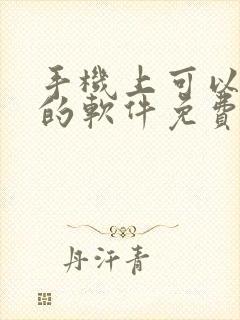 手機上可以
的軟件免費
丹汗青